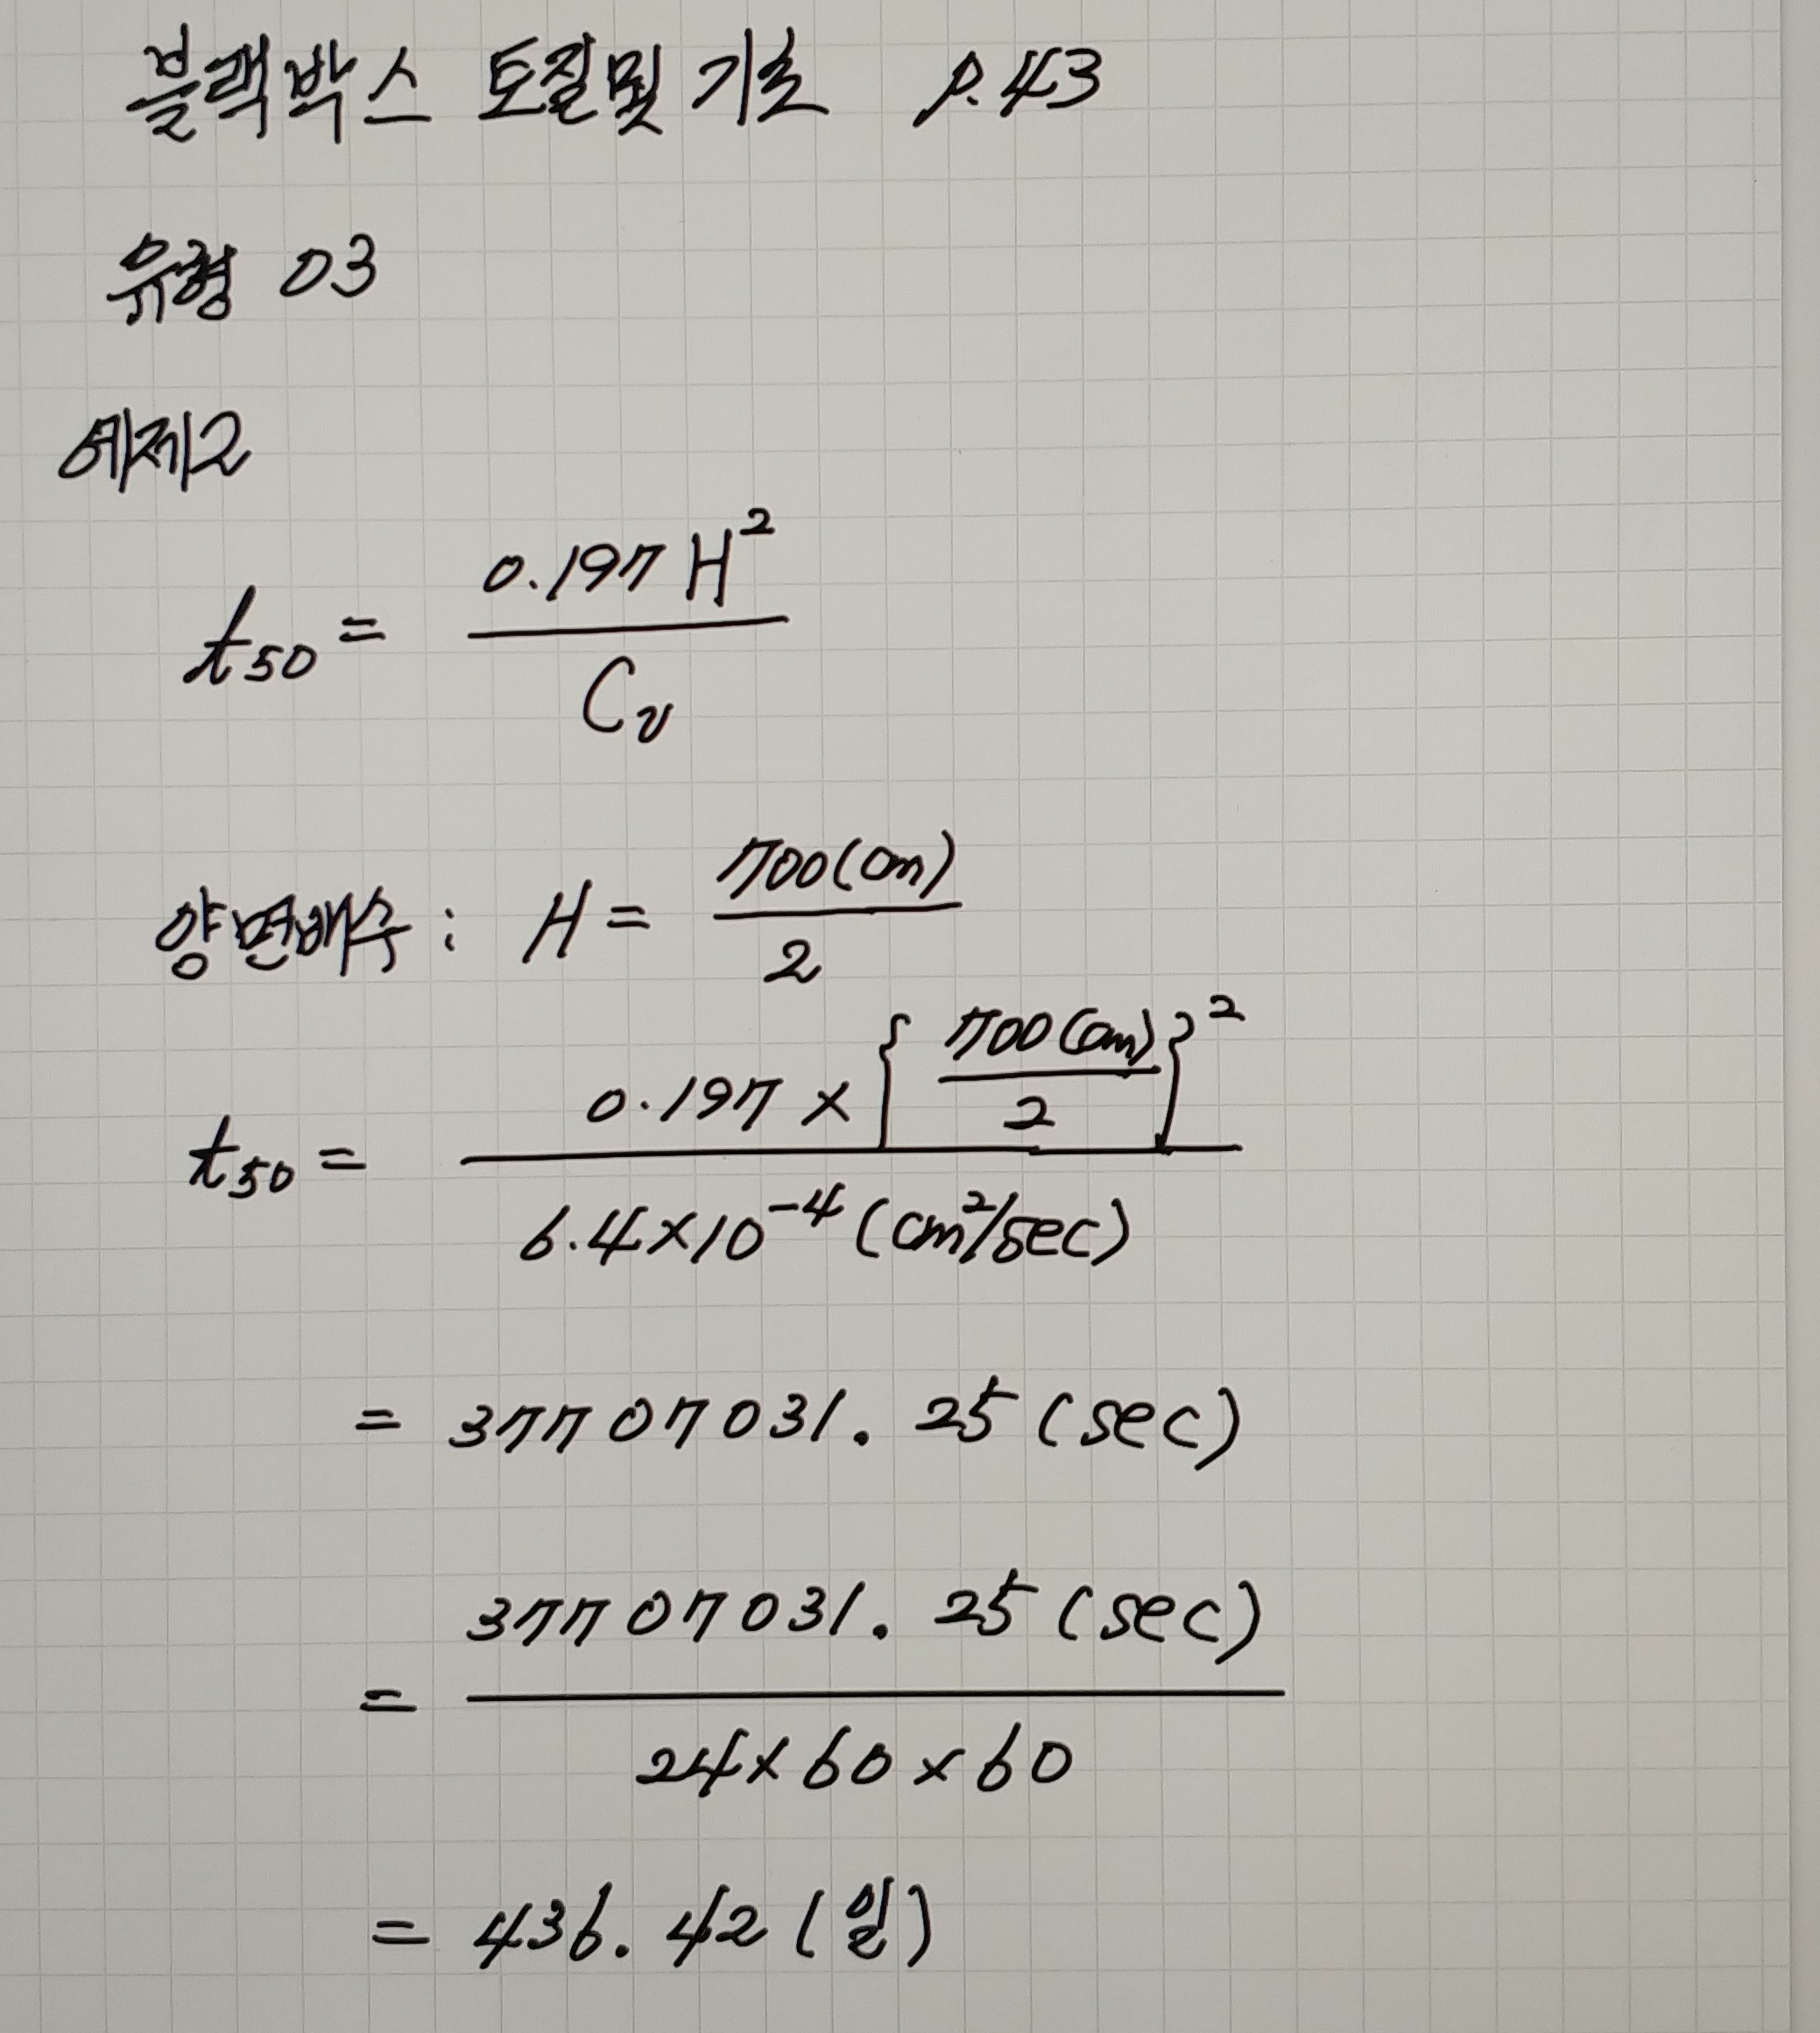 블랙박스 토질및 기초 p.43
유형 03
예제2
t₅₀ = 0.197 H² / Cᵥ
양면배수 : H = 700(cm) / 2
t₅₀ = 0.197 × { 700(cm) / 2 }² / 6.4×10⁻⁴ (cm²/sec)
= 37707031.25 (sec)
= 37707031.25 (sec) / 24×60×60
= 436.42 (일)